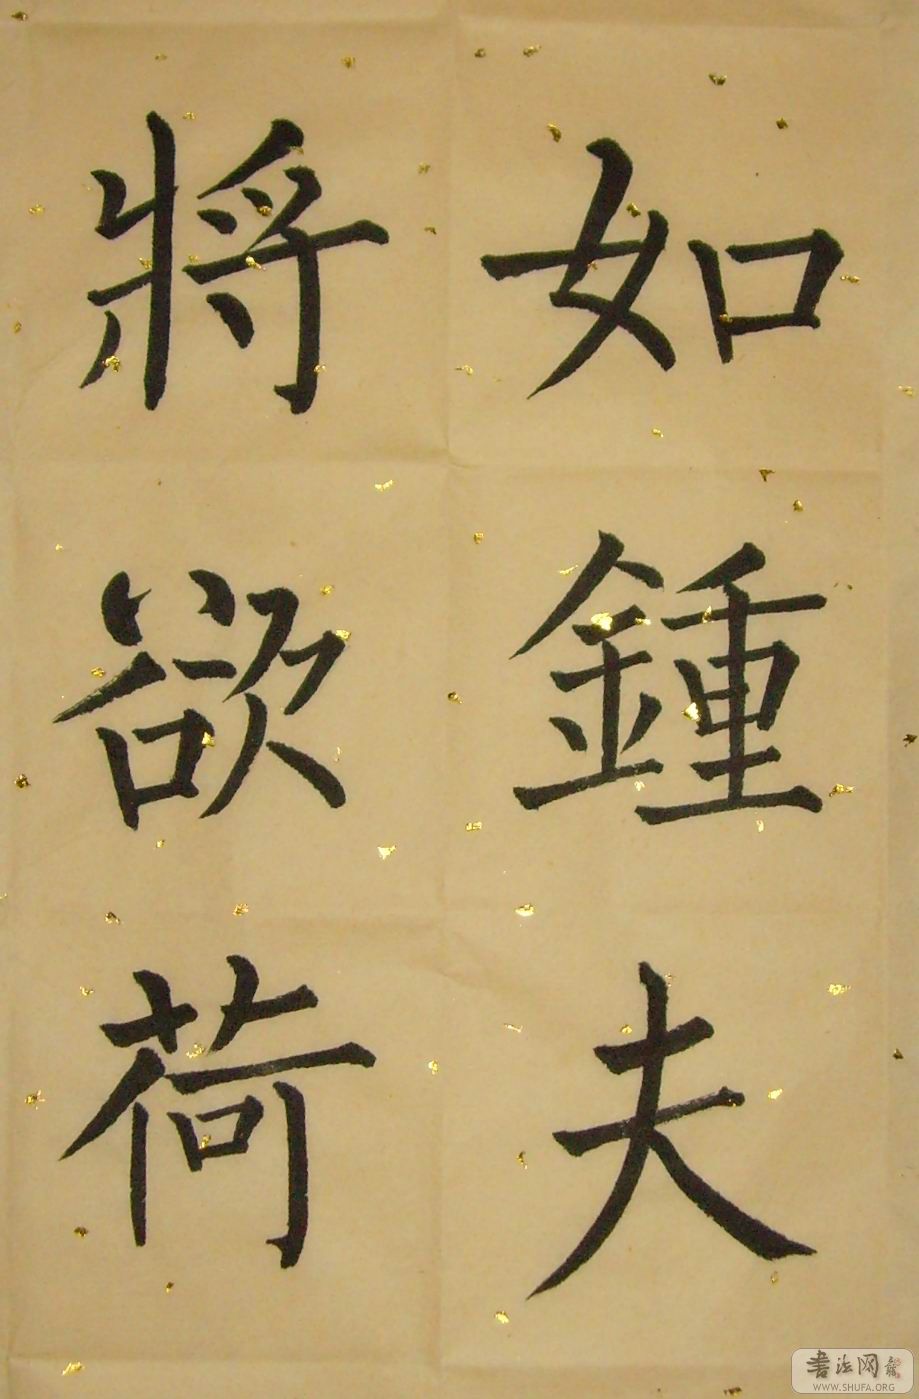 如鍾夫
將欲荷
書法网
WWW.SHUFA.ORG